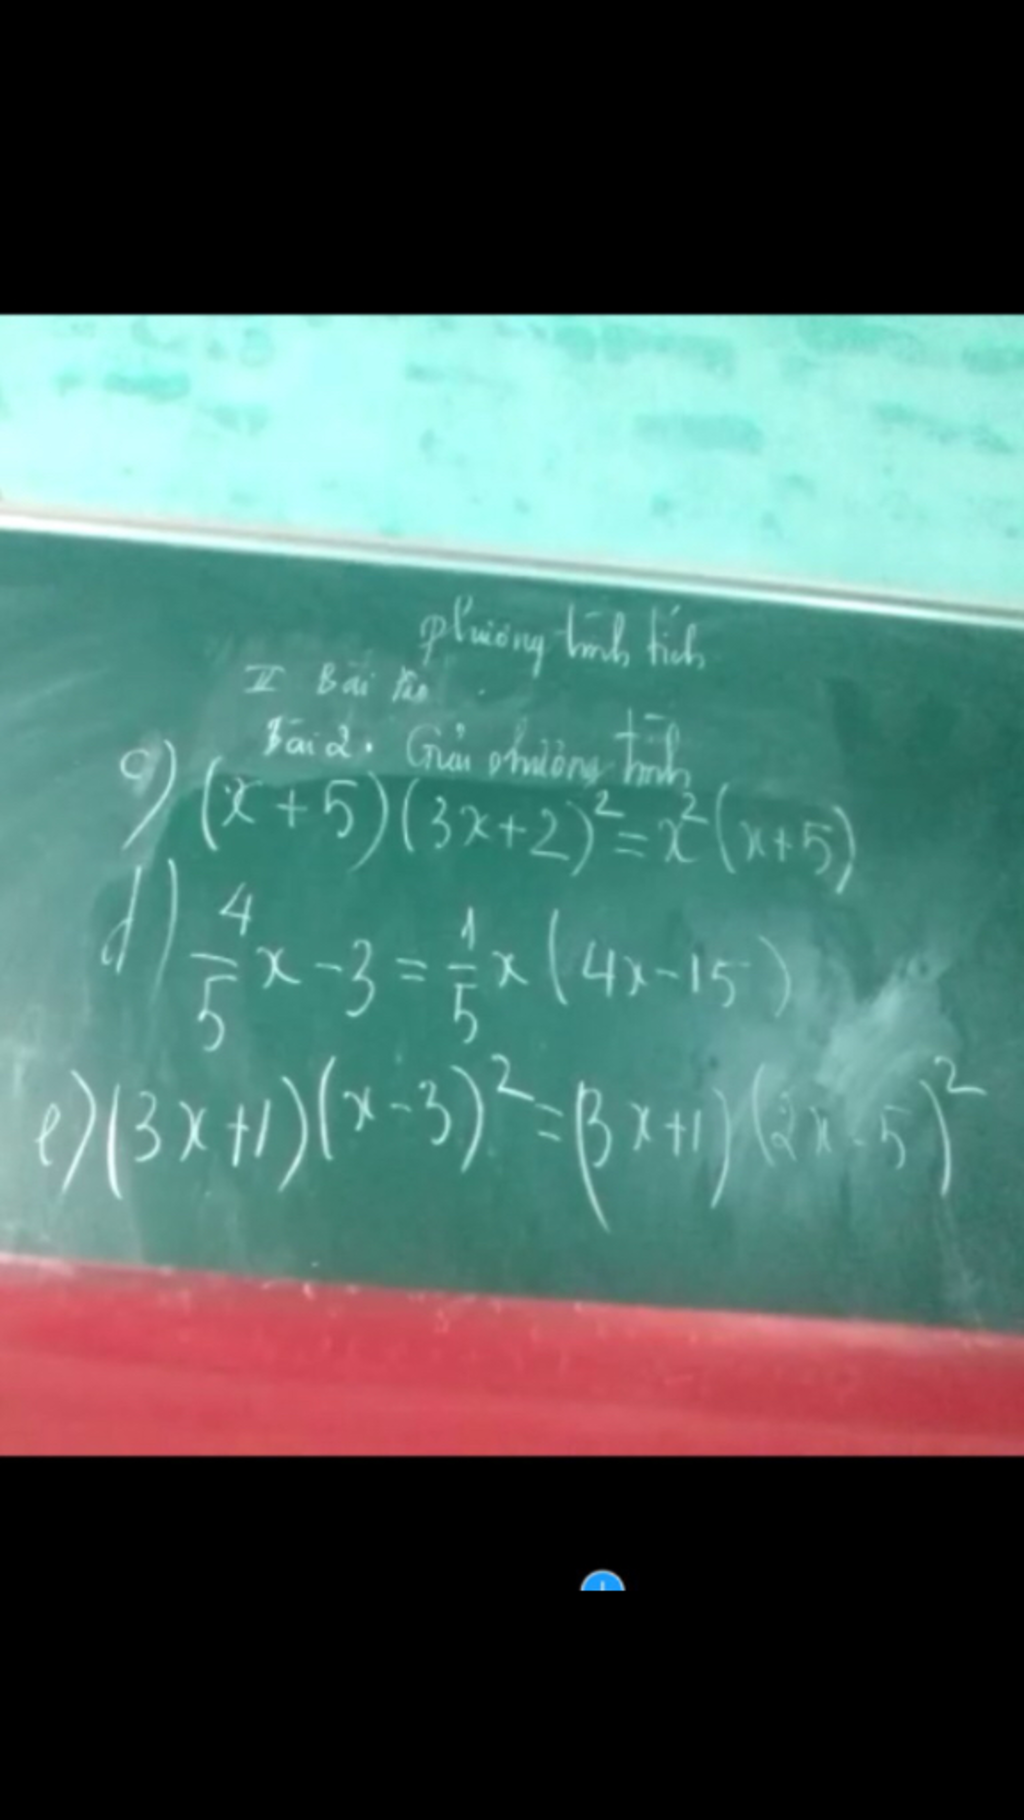 phương trình tích
II Bài tập
Bài 2. Giải phương trình
c) (x+5)(3x+2)²=x²(x+5)
d) 4/5 x-3=1/5 x(4x-15)
e) (3x+1)(x-3)²=(3x+1)(2x-5)²